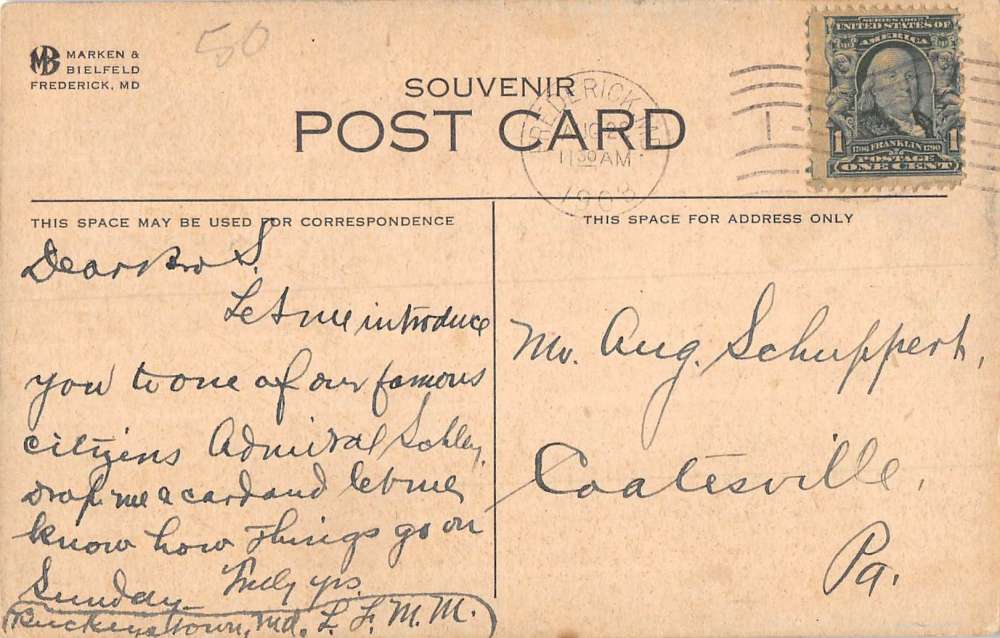 50
MB
MARKEN &
BIELFELD
FREDERICK, MD
SOUVENIR
POST CARD
FREDERICK, MD.
AUG 28
11 30 AM
1908
SERIES 1902
UNITED STATES OF
AMERICA
1 1706 FRANKLIN 1790 1
POSTAGE
ONE CENT
THIS SPACE MAY BE USED FOR CORRESPONDENCE
Dear Bro S.
Let me introduce
you to one of our famous
citizens Admiral Schley.
Drop me a card and let me
know how things go on
Sunday. Truly yrs.
Buckeystown, Md. L. F. M. M.
THIS SPACE FOR ADDRESS ONLY
Mr. Aug. Schuppert,
Coatesville,
Pa.